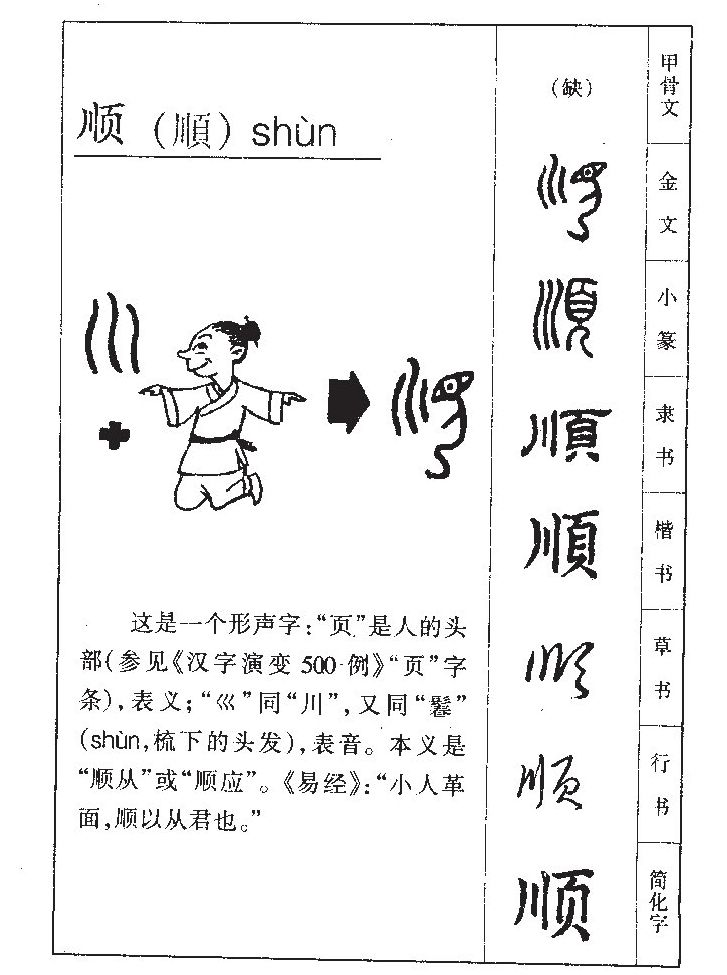 顺（順）shùn
这是一个形声字：“页”是人的头
部（参见《汉字演变500·例》“页”字
条），表义；“巛”同“川”，又同“鬊”
（shùn，梳下的头发），表音。本义是
“顺从”或“顺应”。《易经》：“小人革
面，顺以从君也。”
（缺）
甲骨文
金文
順
小篆
順
隶书
順
楷书
順
草书
顺
行书
顺
简化字
顺